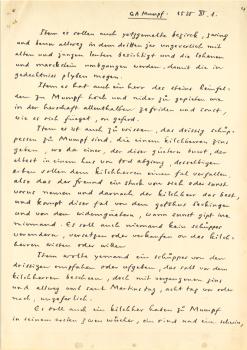 GA Mumpf. 1535 XI. 1.
Item es sollen auch yetzgemelte bezirck, zwing
und bann allweg in dem dritten jar ungevorlich mit
alten und jungen leuten besichtigt und die lohenen
und marckstein umbgangen werden, damit die in
gedechtnus plyben mogen.
Item es hat auch ein herr des steins
zu Mumpf hoch und nider zu gepieten wie
in der herschaft allenthalben, gefreiden und sonst,
wie es sich fuegt, on geferd.
Item es ist auch zu wissen, das dreissig schup-
possen zu Mumpf sind, die einem kilchherren zins
geben, wo da einer, der diser güeter hat, der
eltest in einem hus von tod abgieng, desselbigen
erben sollen dem kilchherren einen fal verfallen.
also das der fründ ein stuck von vich oder sonst
voruss nemen und darnach der kilchherr das best
und kompt diser fal von den gotshus Seckingen
und von den widemguetern, wann sunst gipt wie
niemand. Es soll auch niemand kein schuppos
verendern, versetzen oder verkaufen on des kilch-
herren wissen oder willen.
Item wolte yemand ein schuppos von den
dreissigen empfahen oder ufgeben, das soll vor dem
kilchherren beschehen, doch mit vergangnem zins
und allweg umb sant Martins tag, acht tag vor oder
nach, ungeferlich.
Es soll auch ein kilchher haben zu Mumpf
in seinem kosten zwen wücher, ein rind und ein schwein,